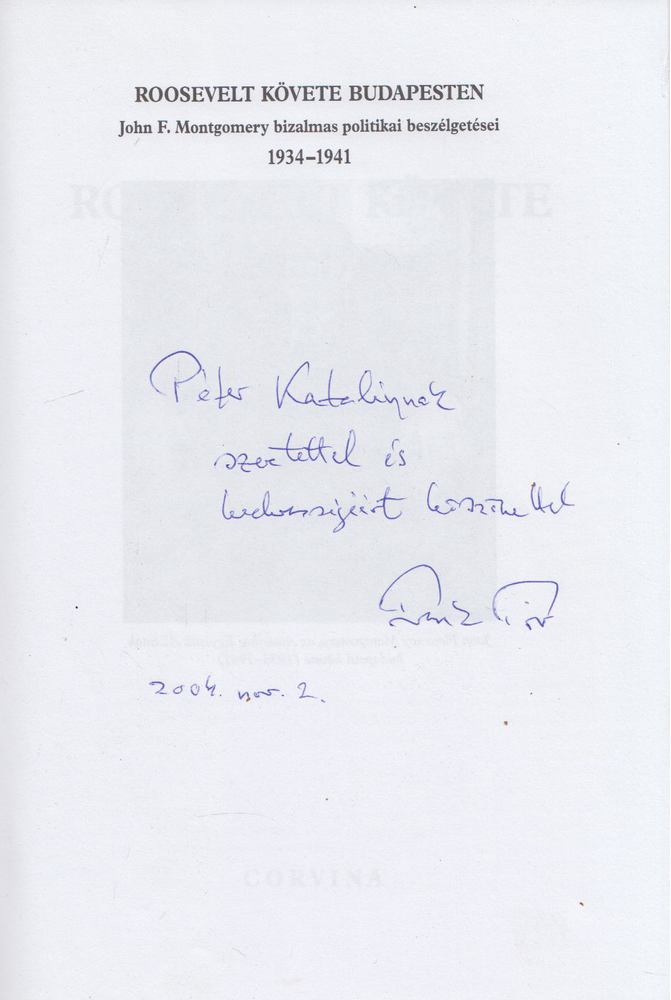 ROOSEVELT KÖVETE BUDAPESTEN
John F. Montgomery bizalmas politikai beszélgetései
1934–1941
Péter Katalinnak
szeretettel és
kedvességéért köszönettel
Frank Tibor
2004. nov. 2.
CORVINA